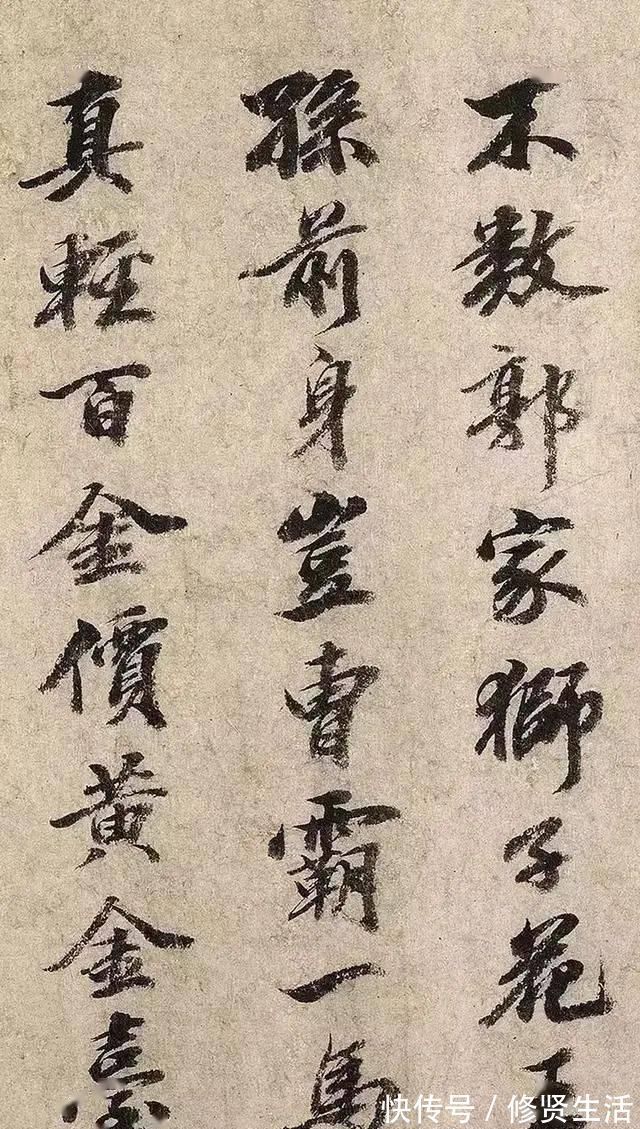 不数郭家獅子花王
孫前身豈曹霸一馬
真輕百金價黄金臺
快传号 / 修贤生活